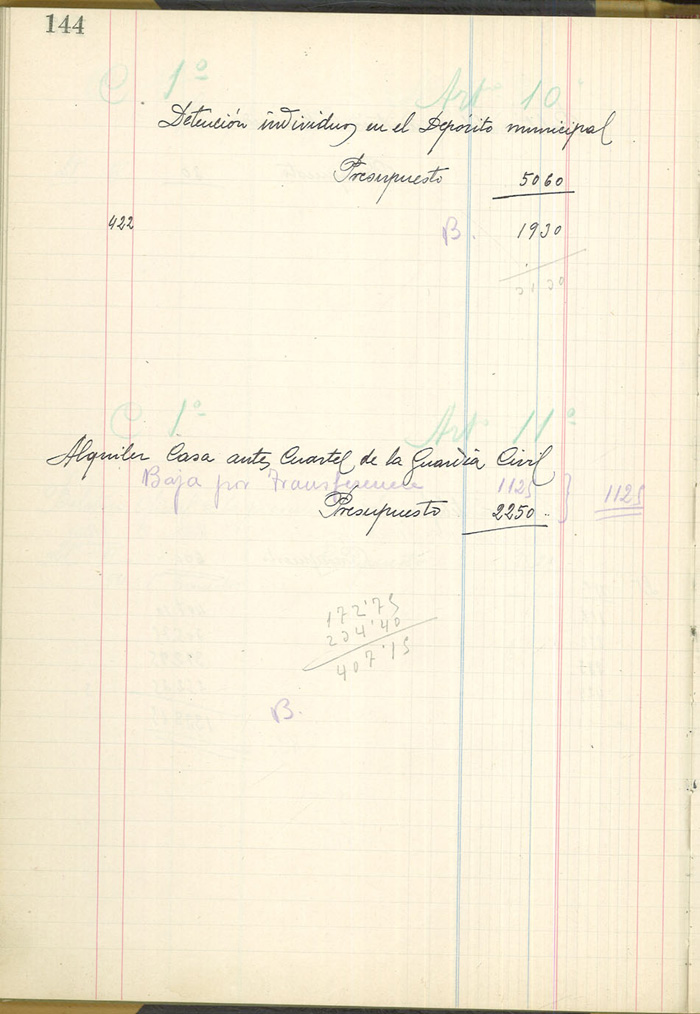 144
C 1º Art 10
Detención individuos en el Depósito municipal
Presupuesto 5060
422 B. 1930
3130
C 1º Art 11º
Alquiler Casa antes Cuartel de la Guardia Civil
Baja por Transferencia 1125
1125
Presupuesto 2250
172'75
234'40
407'15
B.